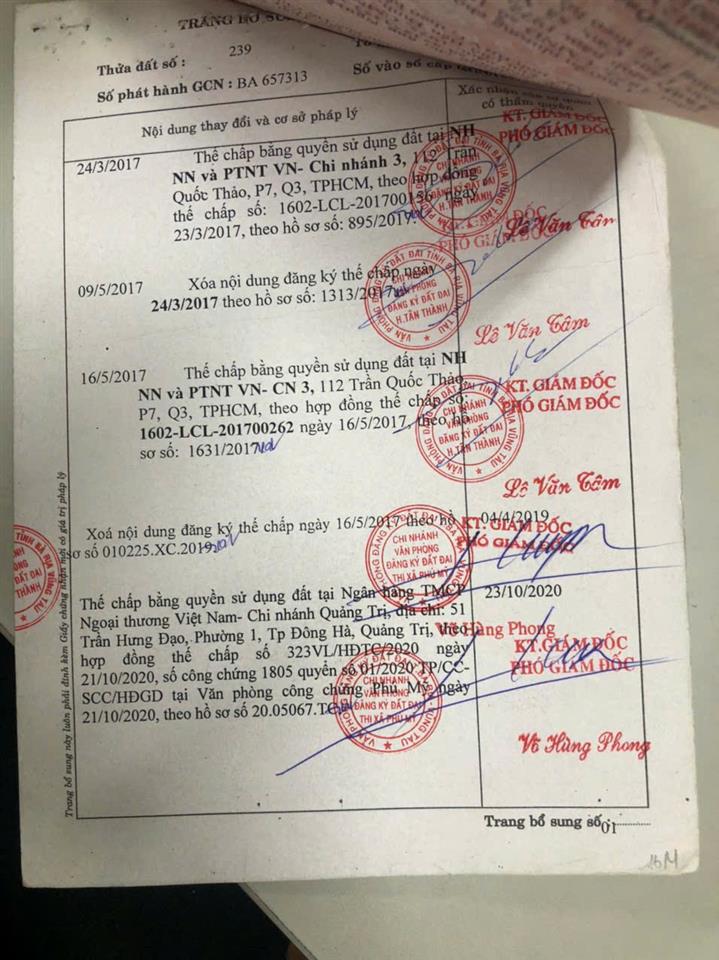 TRANG BỔ
Thửa đất số : 239
Số phát hành GCN : BA 657313
Số vào sổ cấp
Nội dung thay đổi và cơ sở pháp lý
Xác nhận của cơ quan
có thẩm quyền
24/3/2017 Thế chấp bằng quyền sử dụng đất tại NH
NN và PTNT VN- Chi nhánh 3, 112 Trần
Quốc Thảo, P7, Q3, TPHCM, theo hợp đồng
thế chấp số: 1602-LCL-201700156 ngày
23/3/2017, theo hồ sơ số: 895/2017.
KT. GIÁM ĐỐC
PHÓ GIÁM ĐỐC
Lê Văn Tâm
09/5/2017 Xóa nội dung đăng ký thế chấp ngày
24/3/2017 theo hồ sơ số: 1313/2017
GIÁM ĐỐC
PHÓ GIÁM ĐỐC
CHI NHÁNH
VĂN PHÒNG
ĐĂNG KÝ ĐẤT ĐAI
H.TÂN THÀNH
Lê Văn Tâm
16/5/2017 Thế chấp bằng quyền sử dụng đất tại NH
NN và PTNT VN- CN 3, 112 Trần Quốc Thảo,
P7, Q3, TPHCM, theo hợp đồng thế chấp số:
1602-LCL-201700262 ngày 16/5/2017, theo hồ
sơ số: 1631/2017
KT. GIÁM ĐỐC
PHÓ GIÁM ĐỐC
CHI NHÁNH
VĂN PHÒNG
ĐĂNG KÝ ĐẤT ĐAI
H.TÂN THÀNH
Lê Văn Tâm
Xoá nội dung đăng ký thế chấp ngày 16/5/2017 theo hồ
sơ số 010225.XC.2019
04/4/2019
KT. GIÁM ĐỐC
PHÓ GIÁM ĐỐC
CHI NHÁNH
VĂN PHÒNG
ĐĂNG KÝ ĐẤT ĐAI
THỊ XÃ PHÚ MỸ
Võ Hùng Phong
Thế chấp bằng quyền sử dụng đất tại Ngân hàng TMCP
Ngoại thương Việt Nam- Chi nhánh Quảng Trị, địa chỉ: 51
Trần Hưng Đạo, Phường 1, Tp Đông Hà, Quảng Trị, theo
hợp đồng thế chấp số 323VL/HĐTC/2020 ngày
21/10/2020, số công chứng 1805 quyển số 01/2020 TP/CC-
SCC/HĐGD tại Văn phòng công chứng Phú Mỹ ngày
21/10/2020, theo hồ sơ số 20.05067.
23/10/2020
KT.GIÁM ĐỐC
PHÓ GIÁM ĐỐC
CHI NHÁNH
VĂN PHÒNG
ĐĂNG KÝ ĐẤT ĐAI
THỊ XÃ PHÚ MỸ
Võ Hùng Phong
Trang bổ sung này luôn phải đính kèm Giấy chứng nhận mới có giá trị pháp lý
Trang bổ sung số 01
16M